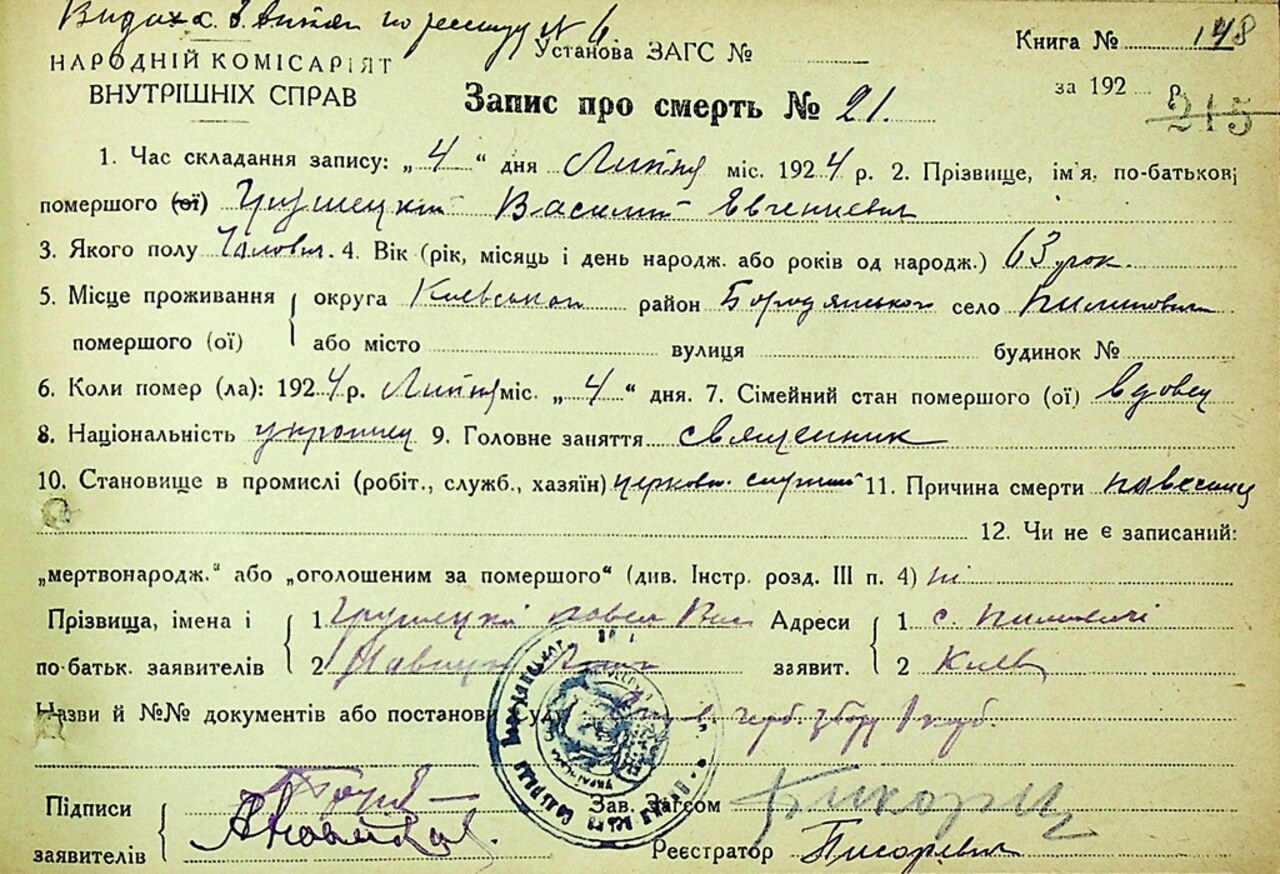 по реєстру № 6
Установа ЗАГС №
Книга № 148
НАРОДНІЙ КОМІСАРІЯТ
ВНУТРІШНІХ СПРАВ
за 192 р.
215
Запис про смерть № 21.
1. Час складання запису: „4“ дня Липня міс. 1924 р. 2. Прізвище, ім'я, по-батькові
помершого (ої) Грушецкий Василий Евгениевич
3. Якого полу Чоловіч. 4. Вік (рік, місяць і день народж. або років од народж.) 63 рок.
5. Місце проживання округа Киевського район Бородянського село Пилиповичи
помершого (ої) або місто вулиця будинок №
6. Коли помер (ла): 1924 р. Липня міс. „4“ дня. 7. Сімейний стан помершого (ої) вдовец
8. Національність украинец 9. Головне заняття священник
10. Становище в промислі (робіт., служб., хазяїн) церковн. 11. Причина смерти
12. Чи не є записаний:
„мертвонародж.“ або „оголошеним за помершого“ (див. Інстр. розд. III п. 4) ні
Прізвища, імена і 1 Грушецкий Павел Вас Адреси 1 с. Пилиповичі
по-батьк. заявителів 2 заявит. 2 Киев
Назви й №№ документів або постанови суду герб. збору 1 руб.
Підписи Зав. Загсом
заявителів Реєстратор Писаревич